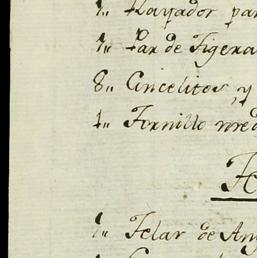 1,, Rayador par
1,, Par de Tigera
8,, Cincelitos, y
1,, Tornillo med
1,, Telar de